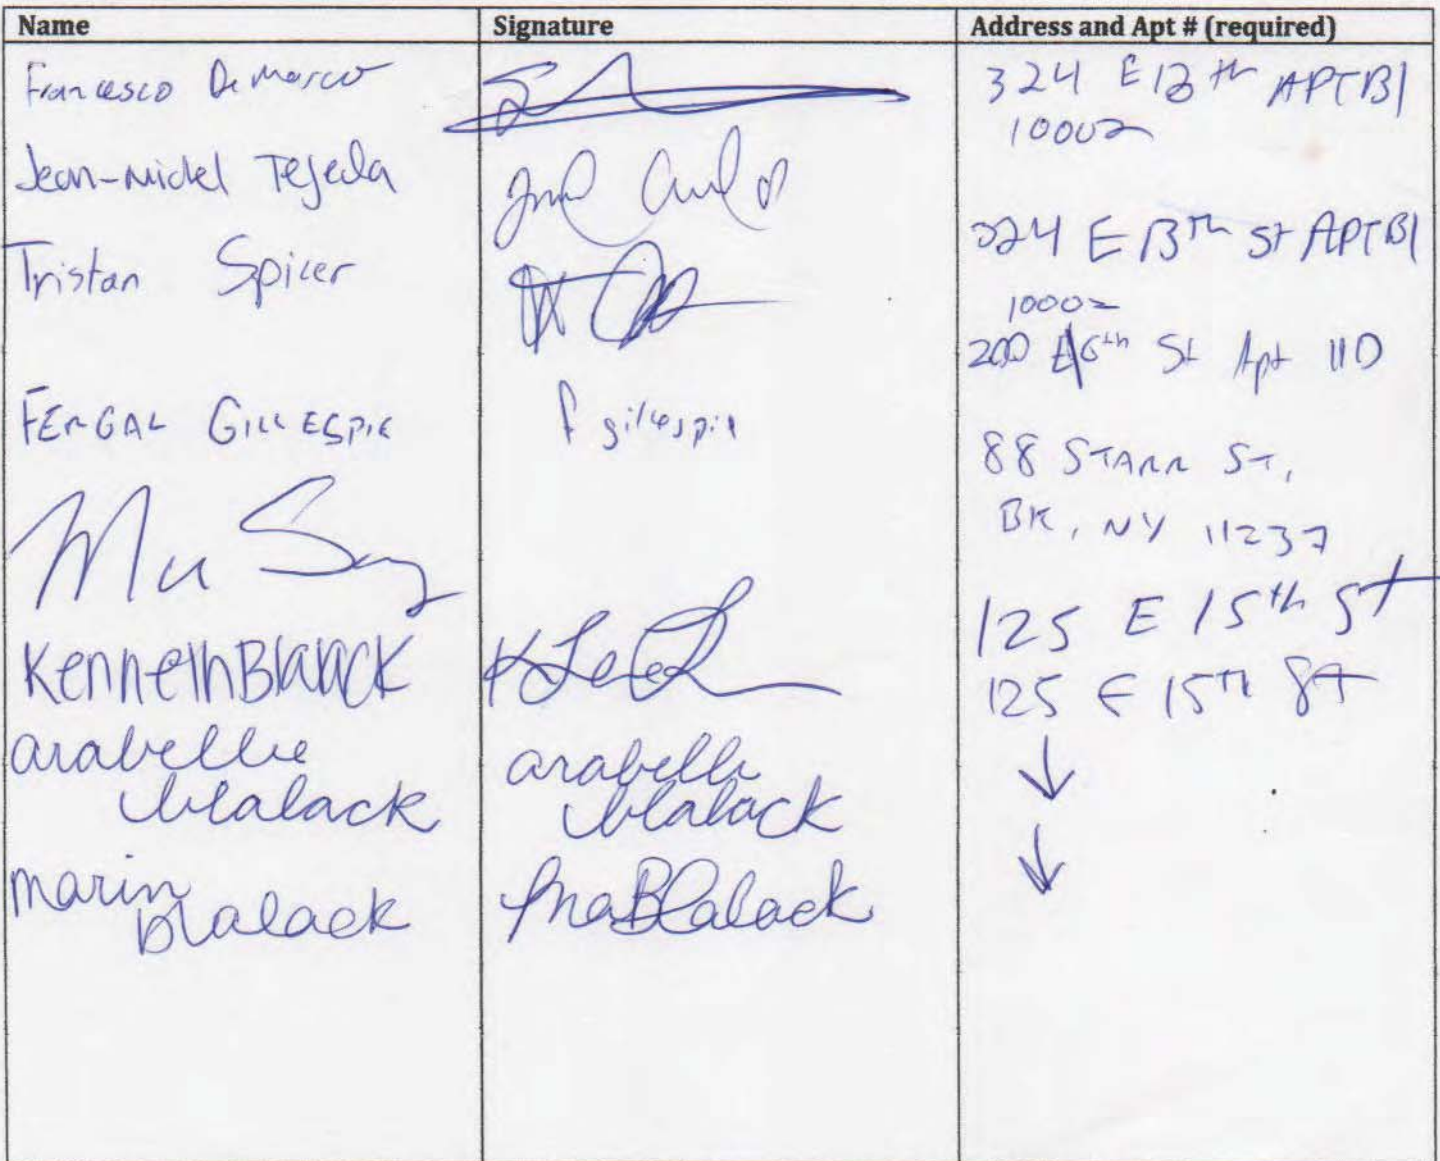 Name Signature Address and Apt # (required)
Francesco DeMarco 324 E 13th APT B1
10002
Jean-Michel Tejeda 324 E 13th St APT B1
10002
Tristan Spicer 200 E 6th St Apt 11D
FERGAL GILLESPIE f gillespie 88 STARR ST,
BK, NY 11237
125 E 15th St
Kenneth Blalack 125 E 15TH ST
arabelle arabelle
blalack blalack
marin
blalack MaBlalack